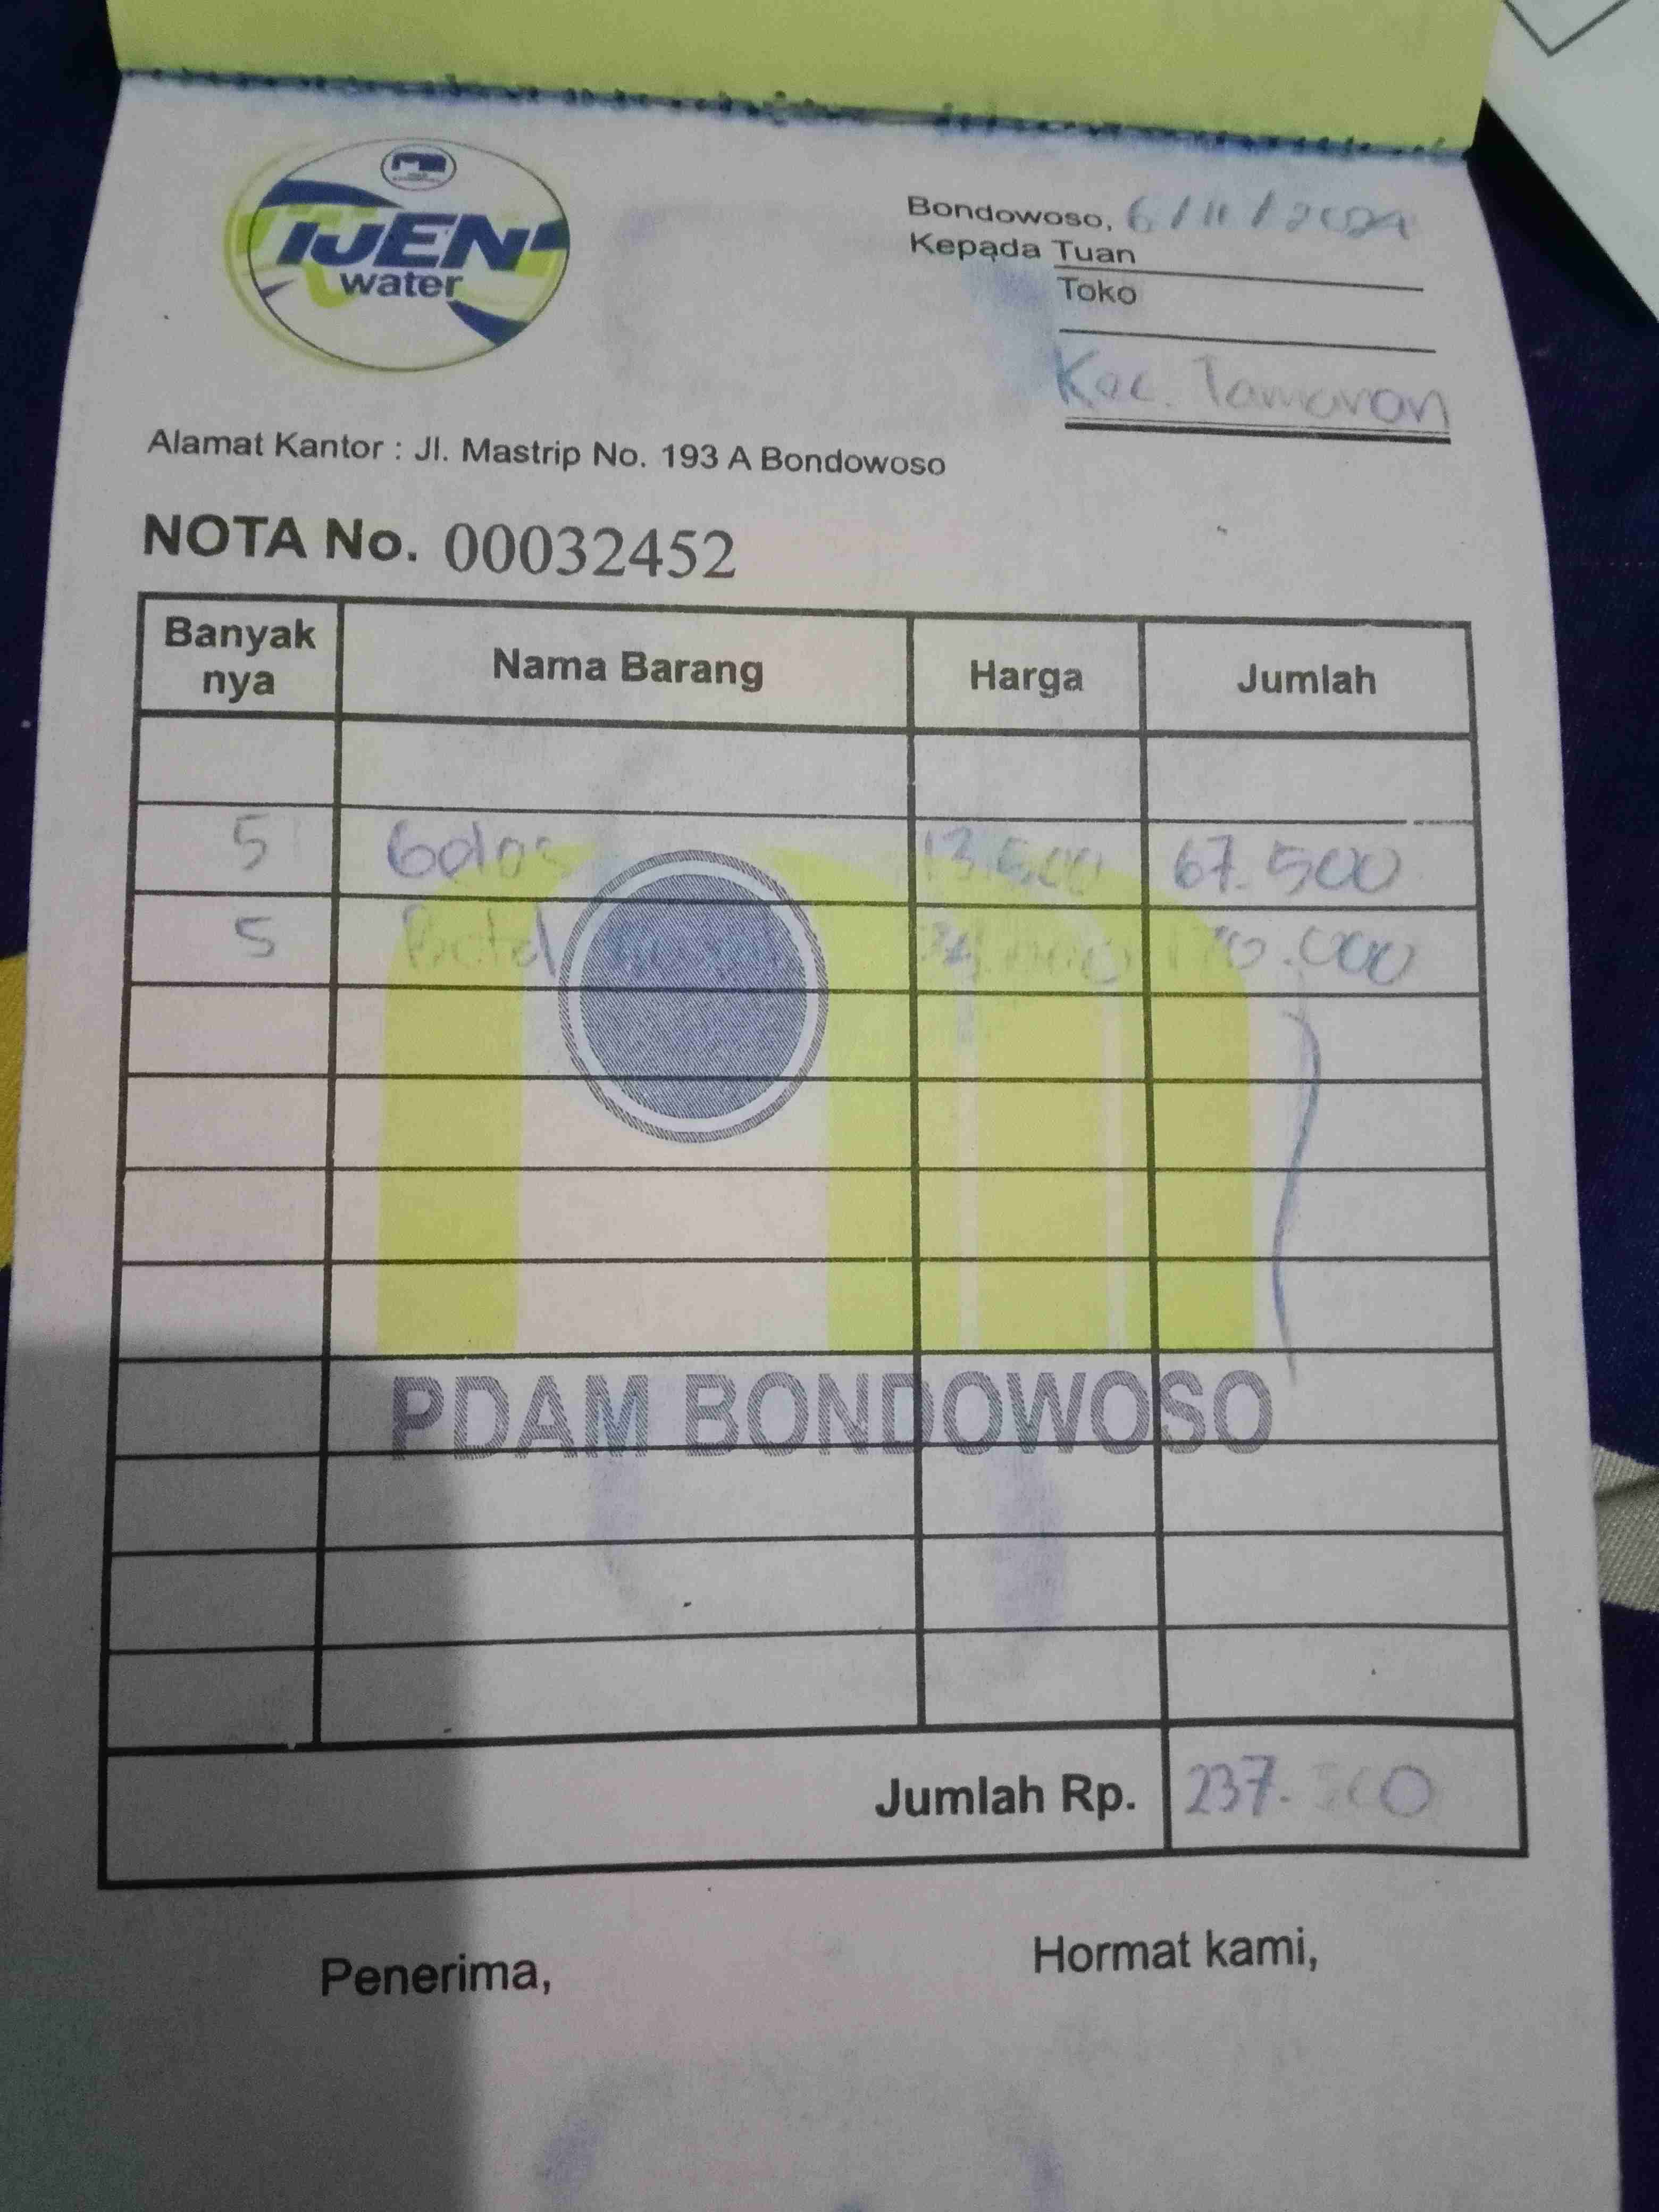 IJEN
water
Bondowoso, 6/11/2024
Kepada Tuan
Toko
Kec. Tamanan
Alamat Kantor : Jl. Mastrip No. 193 A Bondowoso
NOTA No. 00032452
Banyak nya Nama Barang Harga Jumlah
5 Gelas 13.500 67.500
5 Botol 34.000 170.000
PDAM BONDOWOSO
Jumlah Rp. 237.500
Penerima, Hormat kami,